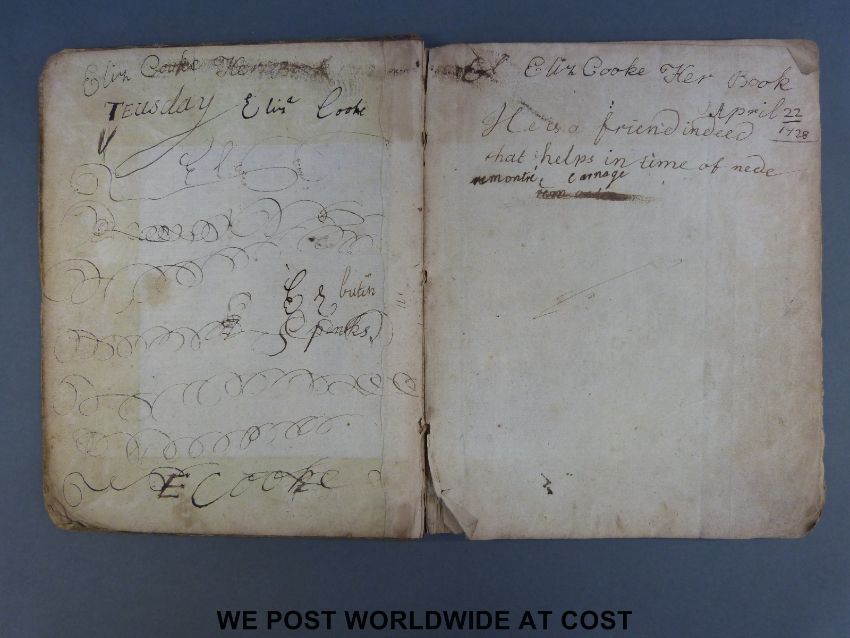 Eliz Cooke Her Book
TEusday Eliz<sup>a</sup> Cooke
Ele
E
butin
E Cooke
El Eliz Cooke Her Book
April 22
1728
He is a friend indeed
that helps in time of nede
WE POST WORLDWIDE AT COST